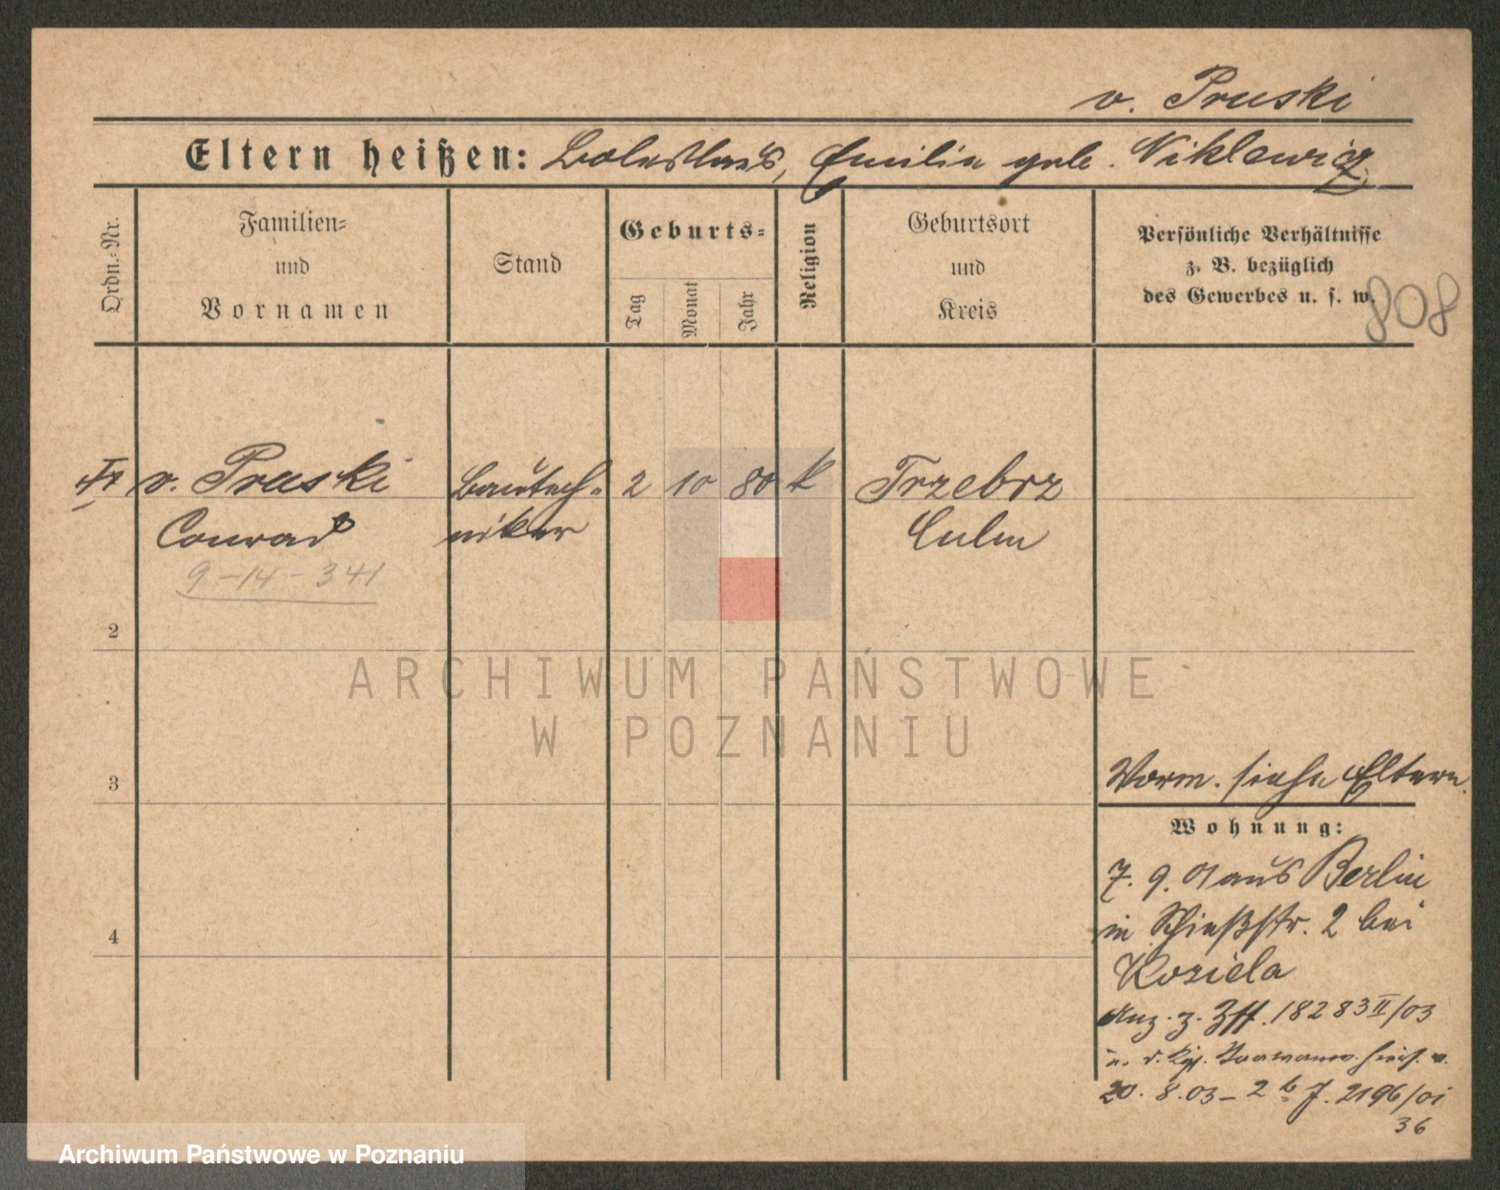 v. Pruski
Eltern heißen: Boleslaus, Emilie geb. Niklewicz
Ordn.-Nr.
Familien-
und
Vornamen
Stand
Geburts-
Tag
Monat
Jahr
Religion
Geburtsort
und
Kreis
Persönliche Verhältnisse
z. B. bezüglich
des Gewerbes u. s. w.
808
v. Pruski Bautech- 2 10 80 k Trzebcz
Conrad niker Culm
9-14-341
2
3
4
Vorm. siehe Eltern.
Wohnung:
7. 9. 01 aus Berlin
in Schießstr. 2 bei
Koziela
Anz. z. 18283 II/03
20. 8. 03 - 2 b J. 2196/01
36
ARCHIWUM PAŃSTWOWE
W POZNANIU
Archiwum Państwowe w Poznaniu